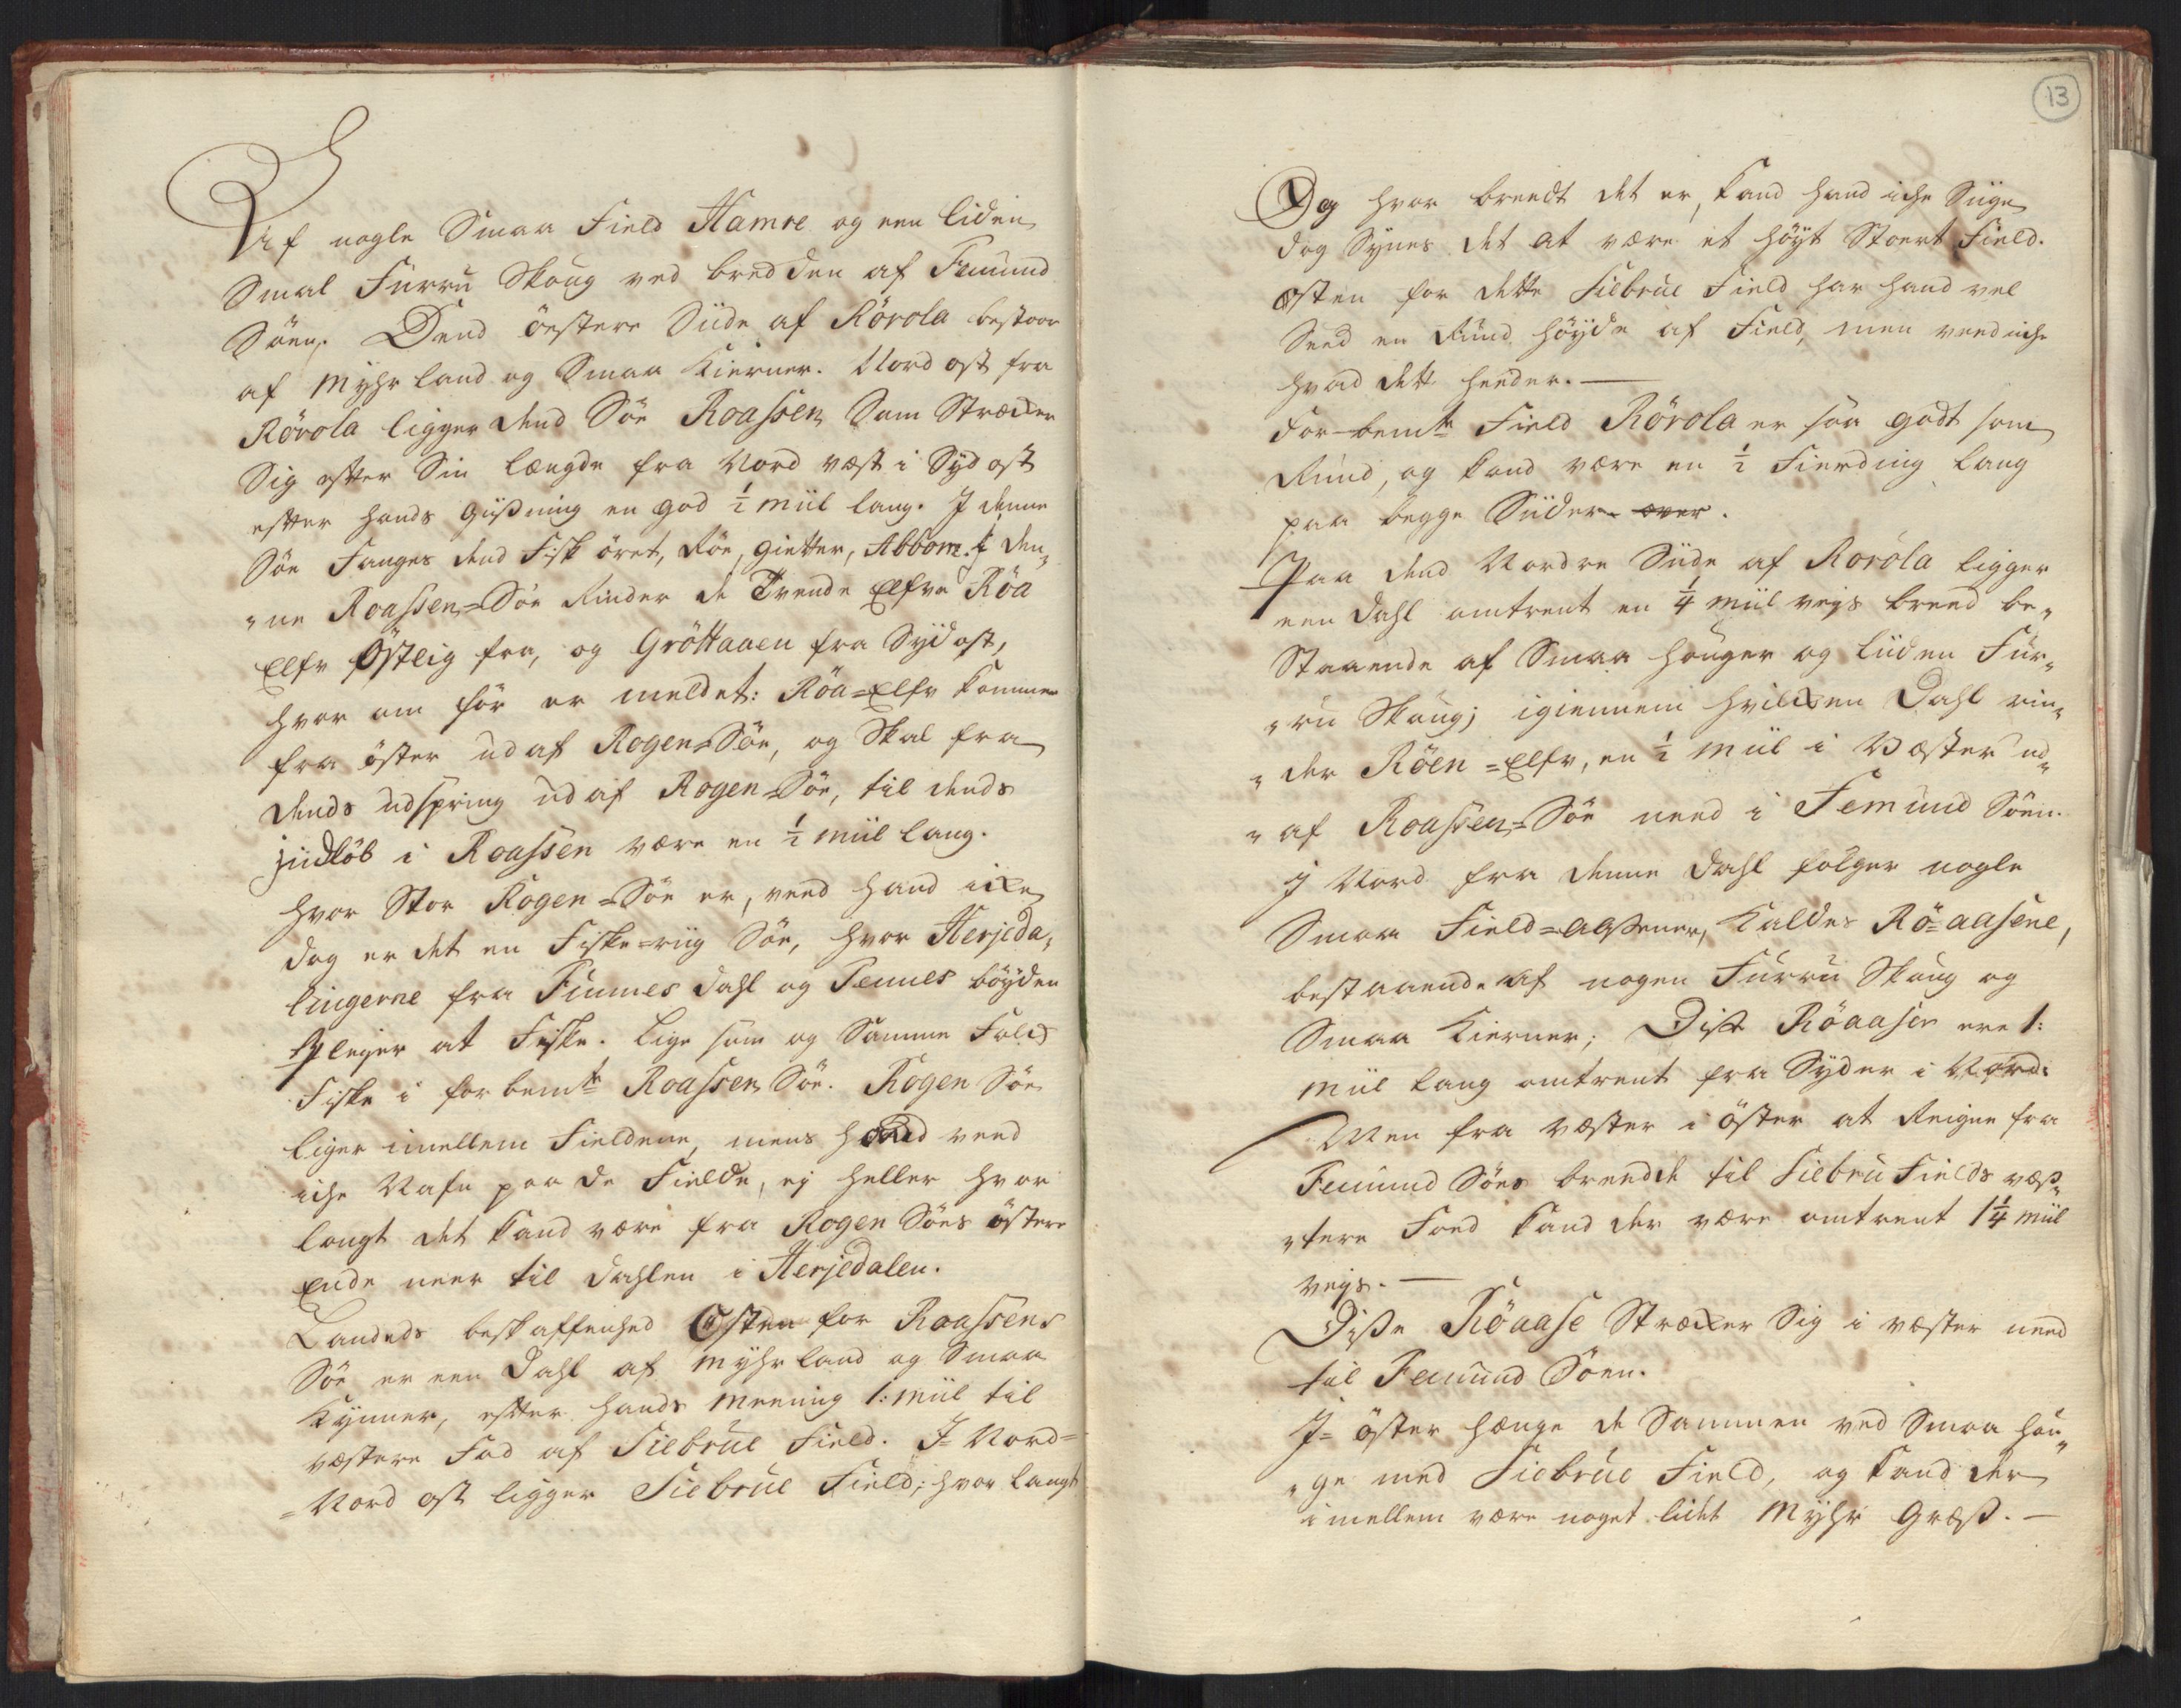 Af nogle Smaa Field Hamre og een liden
Smal Furru Skoug ved bredden af Femund
Söen. Dend öestere Siide af Rörola bestaar
af Myhr land og Smaa Kierner. Nord ost fra
Rörola ligger dend Söe Roassen, Som Strecker
Sig efter Sin Længde fra Nord væst i Syd ost
efter hands gißning en god ½ Miil lang. I denne
Söe Fanges dend Fisk öret, Röe, gietter, Abbore. I den„
„ne Roassen-Söe Rinder de Tvende Elfve Röa
Elfv Östlig fra, og Gröttaaen fra Syd ost,
hvor om för er meldet: Röa-Elfv kommer
fra öster ud af Rogen-Söe, og Skal fra
dends udspring ud af Rogen-Söe, til dends
Jindlöb i Roassen være en ½ Miil lang.
hvor Stor Rogen-Söe er, veed hand icke
dog er det en Fiske-riig Söe, hvor Herjeda„
lingerne fra Funnes dahl og Tennes böyden
Pleyer at Fiske. Lige som og Samme Folck
Fiske i forbemte Roassen Söe. Rogen Söe
liger imellem Fieldene, mens hand veed
iche Nafn paa de Fielde, ej heller hvor
langt det kand være fra Rogen Söes östere
Ende neer til dahlen i Herjedalen.
Landeds beskaffenhed Östen for Roassens
Söe er een Dahl af Myhr land og Smaa
Kynner, efter hands Meening 1: Miil til
væstere Fod af Siebrue Field. I Nord-
-Nord ost ligger Siebrue Field; hvor langt
13
Og hvor breedt det er, kand hand iche Siige
dog Synes det at være et höyt Stoert Field.
østen for dette Siebrue Field har hand vel
Seed en Rund höyde af Field, men veed iche
hvad dett heeder. —
For-bemte Field Rörola er saa godt som
Rund, og kand være en ½ Fierding lang
paa begge Siider. over.
Paa dend Nordre Siide af Rorola ligger
een dahl omtrent en ¼ Miil veys breed be„
Staaende af Smaa houger og liiden Fur„
„ru Skoug; igiennem hvilcken Dahl rin„
„der Röen-Elfv, en ½ Miil i Væster ud„
„af Roassen-Söe need i Femund Söen.
I Nord fra denne dahl fölger nogle
Smaa Field-Aasener, Kaldes Rö-aasene,
bestaaende af nogen Furru Skoug og
Smaa Kierner; Diße Röaaser ere 1:
Miil lang omtrent fra Syder i Nord:
Men fra væster i öster at Reigne fra
Femund Söes bredde til Siebru Fields væs„
„tere Foed kand der være omtrent 1¼ Miil
veys. —
Diße Röaase Strecker Sig i væster need
til Femund Söen.
I- öster hænge de Sammen ved Smaa hou„
„ge med Siebrue Field, og kand der
imellem være noget lidet Myhr Græß. —